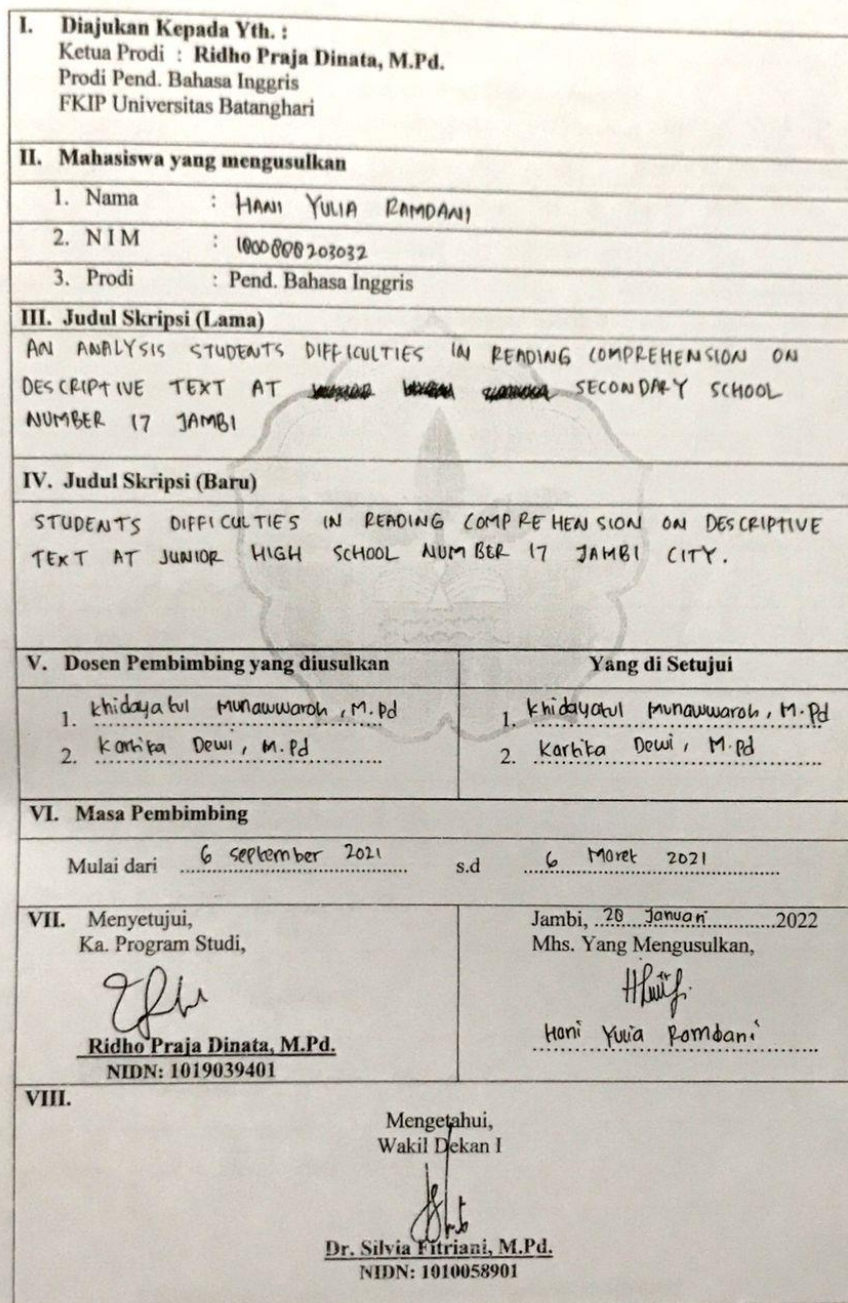 I. Diajukan Kepada Yth. :
Ketua Prodi : Ridho Praja Dinata, M.Pd.
Prodi Pend. Bahasa Inggris
FKIP Universitas Batanghari
II. Mahasiswa yang mengusulkan
1. Nama : HANI YULIA RAMDANI
2. N I M :
3. Prodi : Pend. Bahasa Inggris
III. Judul Skripsi (Lama)
AN ANALYSIS STUDENTS DIFFICULTIES IN READING COMPREHENSION ON
DESCRIPTIVE TEXT AT SECONDARY SCHOOL
NUMBER 17 JAMBI
IV. Judul Skripsi (Baru)
STUDENTS DIFFICULTIES IN READING COMPREHENSION ON DESCRIPTIVE
TEXT AT JUNIOR HIGH SCHOOL NUMBER 17 JAMBI CITY.
V. Dosen Pembimbing yang diusulkan
1. Khidayatul Munawwaroh, M.Pd
2. Kartika Dewi, M.Pd
Yang di Setujui
1. Khidayatul Munawwaroh, M.Pd
2. Kartika Dewi, M.Pd
VI. Masa Pembimbing
Mulai dari 6 September 2021 s.d 6 Maret 2021
VII. Menyetujui,
Ka. Program Studi,
Ridho Praja Dinata, M.Pd.
NIDN: 1019039401
Jambi, 20 Januari 2022
Mhs. Yang Mengusulkan,
Hani Yulia Ramdani
VIII.
Mengetahui,
Wakil Dekan I
Dr. Silvia Fitriani, M.Pd.
NIDN: 1010058901